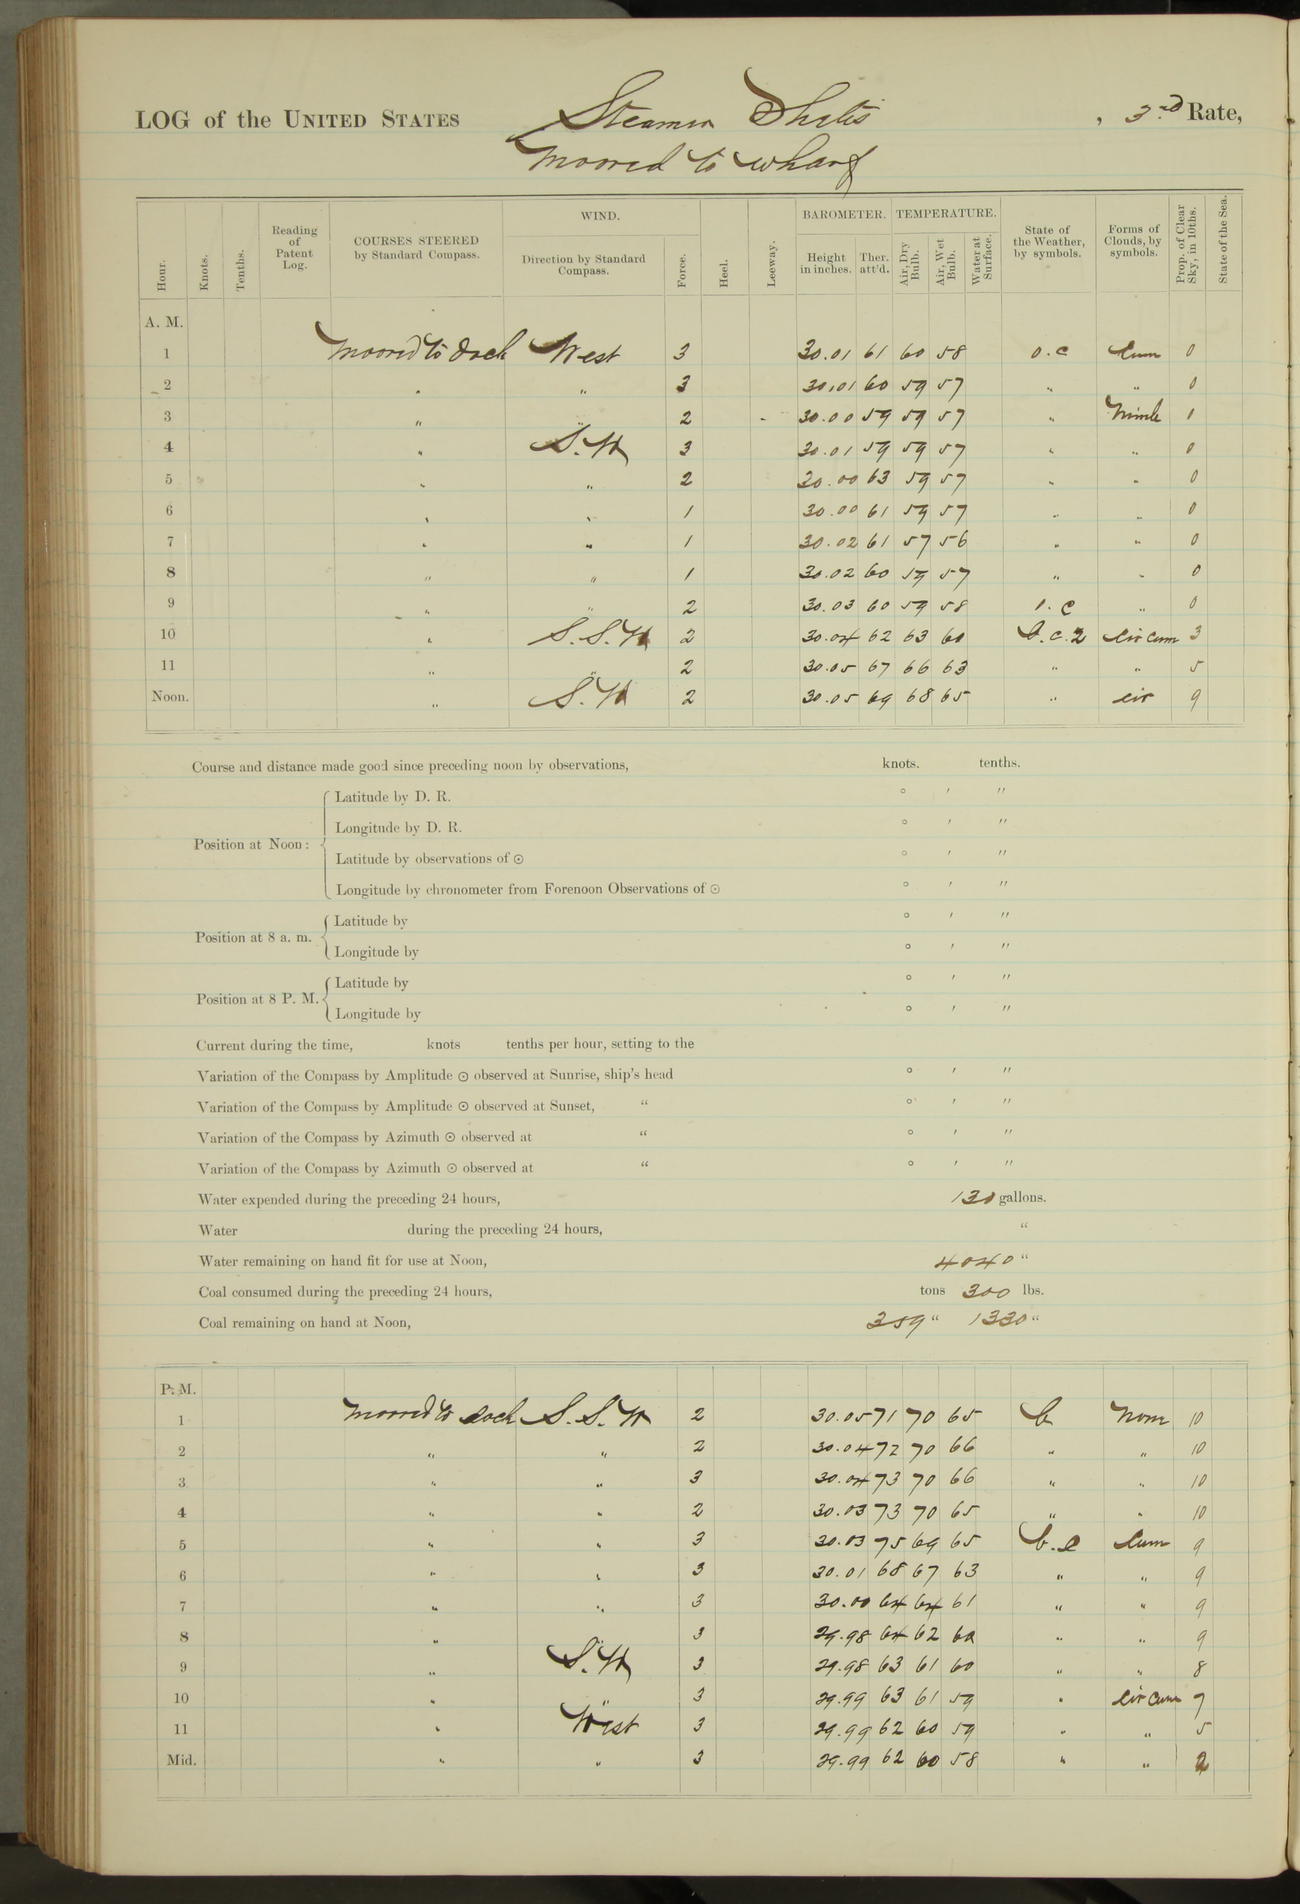 LOG of the UNITED STATES Steamer Thetis, 3rd Rate,
Moored to wharf
Hour. Knots. Tenths. Reading of Patent Log. COURSES STEERED by Standard Compass. WIND. Direction by Standard Compass. Force. Heel. Leeway. BAROMETER. Height in inches. Ther. att'd. TEMPERATURE. Air, Dry Bulb. Air, Wet Bulb. Water at Surface. State of the Weather, by symbols. Forms of Clouds, by symbols. Prop. of Clear Sky, in 10ths. State of the Sea.
A. M.
1 Moored to dock West 3 30.01 61 60 58 o.c Cum 0
2 " " 3 30.01 60 59 57 " " 0
3 " " 2 30.00 59 59 57 " Nimb 1
4 " S.W 3 30.01 59 59 57 " " 0
5 " " 2 30.00 63 59 57 " " 0
6 " " 1 30.00 61 59 57 " " 0
7 " " 1 30.02 61 57 56 " " 0
8 " " 1 30.02 60 59 57 " " 0
9 " " 2 30.03 60 59 58 " 0
10 " S.S.W 2 30.04 62 63 60 b.c.2 Cir Cum 3
11 " " 2 30.05 67 66 63 " " 5
Noon. " S.W 2 30.05 69 68 65 " Cir 9
Course and distance made good since preceding noon by observations, knots. tenths.
Position at Noon:
Latitude by D. R. ° ′ ″
Longitude by D. R. ° ′ ″
Latitude by observations of ☉ ° ′ ″
Longitude by chronometer from Forenoon Observations of ☉ ° ′ ″
Position at 8 a. m. Latitude by ° ′ ″
Longitude by ° ′ ″
Position at 8 P. M. Latitude by ° ′ ″
Longitude by ° ′ ″
Current during the time, knots tenths per hour, setting to the
Variation of the Compass by Amplitude ☉ observed at Sunrise, ship's head ° ′ ″
Variation of the Compass by Amplitude ☉ observed at Sunset, " ° ′ ″
Variation of the Compass by Azimuth ☉ observed at " ° ′ ″
Variation of the Compass by Azimuth ☉ observed at " ° ′ ″
Water expended during the preceding 24 hours, 130 gallons.
Water during the preceding 24 hours, "
Water remaining on hand fit for use at Noon, 4040 "
Coal consumed during the preceding 24 hours, tons 300 lbs.
Coal remaining on hand at Noon, 359 " 1330 "
P. M.
1 Moored to dock S.S.W 2 30.05 71 70 65 b Nom 10
2 " " 2 30.04 72 70 66 " " 10
3 " " 3 30.04 73 70 66 " " 10
4 " " 2 30.03 73 70 65 " " 10
5 " " 3 30.03 75 69 65 b.c Cum 9
6 " " 3 30.01 68 67 63 " " 9
7 " " 3 30.00 64 64 61 " " 9
8 " " 3 29.98 64 62 60 " " 9
9 " S.W 3 29.98 63 61 60 " " 8
10 " " 3 29.99 63 61 59 " Cir Cum 7
11 " West 3 29.99 62 60 59 " " 5
Mid. " " 3 29.99 62 60 58 " " 2